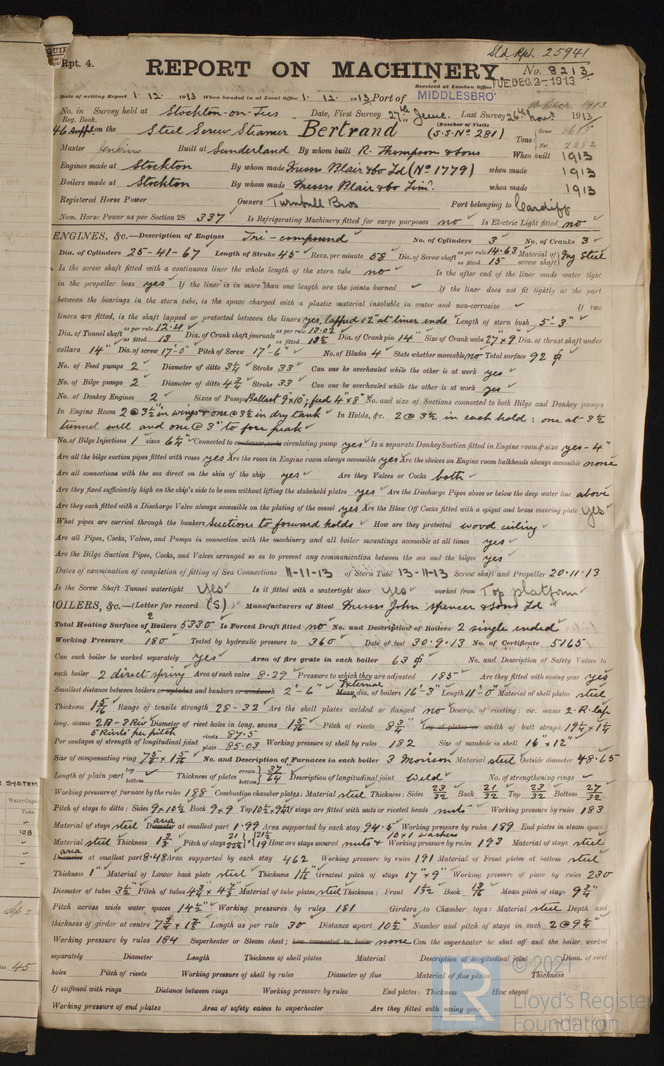 Std Rpt. 25941
Rpt. 4.
REPORT ON MACHINERY.
No. 8213
Received at London Office TUE. DEC. 2-1913
Date of writing Report 1. 12. 1913 When handed in at Local Office 1. 12. 1913 Port of MIDDLESBRO'
No. in Survey held at Stockton-on-Tees Date, First Survey 27th June Last Survey 26th Nov. 1913
Reg. Book.
on the Steel Screw Steamer Bertrand (S.S. No 281) (Number of Visits
Tons Gross Net
Master Built at Sunderland By whom built R. Thompson & Sons When built 1913
Engines made at Stockton By whom made Messrs Blair & Co Ld (No 1779) when made 1913
Boilers made at Stockton By whom made Messrs Blair & Co Lim. when made 1913
Registered Horse Power Owners Turnbull Bros Port belonging to Cardiff
Nom. Horse Power as per Section 28 337 Is Refrigerating Machinery fitted for cargo purposes no Is Electric Light fitted no
ENGINES, &c.—Description of Engines Tri-compound No. of Cylinders 3 No. of Cranks 3
Dia. of Cylinders 25-41-67 Length of Stroke 45 Revs. per minute 58 Dia. of Screw shaft as per rule 14.63 as fitted 15" Material of screw shaft Ing Steel
Is the screw shaft fitted with a continuous liner the whole length of the stern tube no Is the after end of the liner made water tight
in the propeller boss yes If the liner is in more than one length are the joints burned If the liner does not fit tightly at the part
between the bearings in the stern tube, is the space charged with a plastic material insoluble in water and non-corrosive If two
liners are fitted, is the shaft lapped or protected between the liners yes, lapped 12" at liner ends Length of stern bush 5'-3"
Dia. of Tunnel shaft as per rule 12.4 as fitted 13 Dia. of Crank shaft journals as per rule 13.02 as fitted 13½ Dia. of Crank pin 14" Size of Crank webs 27"x9 Dia. of thrust shaft under
collars 14" Dia. of screw 17'-0" Pitch of Screw 17'-6" No. of Blades 4 State whether moveable no Total surface 92 ф
No. of Feed pumps 2 Diameter of ditto 3½ Stroke 33 Can one be overhauled while the other is at work yes
No. of Bilge pumps 2 Diameter of ditto 4¾ Stroke 33 Can one be overhauled while the other is at work yes
No. of Donkey Engines 2 Sizes of Pumps Ballast 9"x10"; feed 4"x8" No. and size of Suctions connected to both Bilge and Donkey pumps
In Engine Room 2 @ 3½" in wings & one @ 3½ in dry tank In Holds, &c. 2 @ 3½ in each hold: one at 3½
tunnel well and one @ 3" to fore peak
No. of Bilge Injections 1 sizes 6½" Connected to condenser, or to circulating pump yes Is a separate Donkey Suction fitted in Engine room & size yes - 4"
Are all the bilge suction pipes fitted with roses yes Are the roses in Engine room always accessible yes Are the sluices on Engine room bulkheads always accessible none
Are all connections with the sea direct on the skin of the ship yes Are they Valves or Cocks both
Are they fixed sufficiently high on the ship's side to be seen without lifting the stokehold plates yes Are the Discharge Pipes above or below the deep water line above
Are they each fitted with a Discharge Valve always accessible on the plating of the vessel yes Are the Blow Off Cocks fitted with a spigot and brass covering plate yes
What pipes are carried through the bunkers Suctions to forward holds How are they protected wood ceiling
Are all Pipes, Cocks, Valves, and Pumps in connection with the machinery and all boiler mountings accessible at all times yes
Are the Bilge Suction Pipes, Cocks, and Valves arranged so as to prevent any communication between the sea and the bilges yes
Dates of examination of completion of fitting of Sea Connections 11-11-13 of Stern Tube 13-11-13 Screw shaft and Propeller 20.11.13
Is the Screw Shaft Tunnel watertight Yes Is it fitted with a watertight door Yes worked from Top platform
BOILERS, &c.—(Letter for record (S) Manufacturers of Steel Messrs John Spencer & Sons Ld
Total Heating Surface of 2 Boilers 5330 Is Forced Draft fitted no No. and Description of Boilers 2 single ended
Working Pressure 180 Tested by hydraulic pressure to 360 Date of test 30.9.13 No. of Certificate 5165
Can each boiler be worked separately yes Area of fire grate in each boiler 63 ф No. and Description of Safety Valves to
each boiler 2 direct spring Area of each valve 8.29 Pressure to which they are adjusted 185 Are they fitted with easing gear yes
Smallest distance between boilers or uptakes and bunkers or woodwork 2'-6" External Mean dia. of boilers 16'-3" Length 11'-0" Material of shell plates steel
Thickness 1 5/16 Range of tensile strength 28-32 Are the shell plates welded or flanged no Descrip. of riveting: cir. seams 2.R. lap
long. seams 2B-3Riv Diameter of rivet holes in long. seams 1 5/16 Pitch of rivets 8¾ Lap of plates or width of butt straps 19¼x1¼
5 Rivets per pitch
Per centages of strength of longitudinal joint rivets 87.5 plate 85.03 Working pressure of shell by rules 182 Size of manhole in shell 16"x12"
Size of compensating ring No. and Description of Furnaces in each boiler 3 Morison Material steel Outside diameter 48.65
Length of plain part top bottom Thickness of plates crown bottom 37/64 Description of longitudinal joint Weld No. of strengthening rings
Working pressure of furnace by the rules 188 Combustion chamber plates: Material steel Thickness: Sides 23/32 Back 21/32 Top 23/32 Bottom 27/32
Pitch of stays to ditto: Sides 9x10½ Back 9x9 Top If stays are fitted with nuts or riveted heads nuts Working pressure by rules 183
Material of stays steel Diameter area at smallest part 1.99 Area supported by each stay 94.5 Working pressure by rules 189 End plates in steam space:
Material steel Thickness Pitch of stays How are stays secured nuts & washers Working pressure by rules 193 Material of stays steel
Diameter area at smallest part 8.48 Area supported by each stay 462 Working pressure by rules 191 Material of Front plates at bottom steel
Thickness 1" Material of Lower back plate steel Thickness Greatest pitch of stays 17"x9" Working pressure of plate by rules 230
Diameter of tubes 3½" Pitch of tubes Material of tube plates steel Thickness: Front Back Mean pitch of stays
Pitch across wide water spaces 14½" Working pressures by rules 181 Girders to Chamber tops: Material steel Depth and
thickness of girder at centre Length as per rule 30 Distance apart 10½" Number and pitch of stays in each 2 @ 9¼"
Working pressure by rules 184 Superheater or Steam chest; how connected to boiler none Can the superheater be shut off and the boiler worked
separately Diameter Length Thickness of shell plates Material Description of longitudinal joint Diam. of rivet
holes Pitch of rivets Working pressure of shell by rules Diameter of flue Material of flue plates Thickness
If stiffened with rings Distance between rings Working pressure by rules End plates: Thickness How stayed
Working pressure of end plates Area of safety valves to superheater Are they fitted with easing gear
© 2021
Lloyd's Register
Foundation